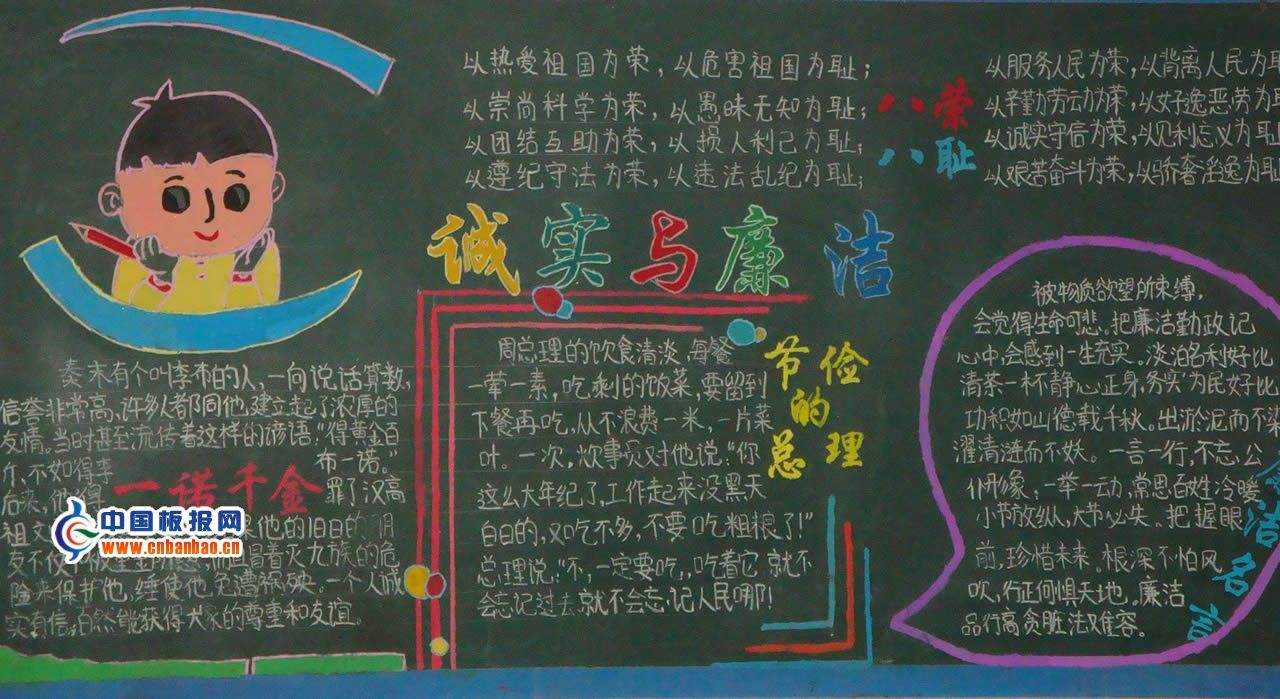 以热爱祖国为荣，以危害祖国为耻；
以崇尚科学为荣，以愚昧无知为耻；
以团结互助为荣，以损人利己为耻；
以遵纪守法为荣，以违法乱纪为耻；
八荣
八耻
以服务人民为荣，以背离人民为耻
以辛勤劳动为荣，以好逸恶劳为耻
以诚实守信为荣，以见利忘义为耻
以艰苦奋斗为荣，以骄奢淫逸为耻
诚实与廉洁
秦末有个叫季布的人，一向说话算数，
信誉非常高，许多人都同他建立起了浓厚的
友情。当时甚至流传着这样的谚语："得黄金百
斤，不如得季
布一诺。"
一诺千金
后来，他得
罪了汉高
祖
他的旧日的朋
友不仅
而且冒着灭九族的危
险来保护他，
使他免遭祸殃。一个人诚
实有信，自然能获得大家的尊重和友谊。
中国板报网
www.cnbanbao.cn
节俭
的
总理
周总理的饮食清淡，每餐
一荤一素，吃剩的饭菜，要留到
下餐再吃，从不浪费一米，一片菜
叶。一次，炊事员对他说："你
这么大年纪了，工作起来没黑天
白日的，又吃不多，不要吃粗粮了！"
总理说："不，一定要吃，吃着它就不
会忘记过去，就不会忘记人民哪！
被物质欲望所束缚，
会觉得生命可悲、把廉洁勤政记
心中，会感到一生充实。淡泊名利好比
清茶一杯静心正身，务实为民好比
功积如山德载千秋。出淤泥而不染
濯清涟而不妖。一言一行，不忘公
仆形象，一举一动，常思百姓冷暖
小节放纵，大节必失。把握眼
前，珍惜未来。根深不怕风
吹，行正何惧天地。廉洁
品行高贪脏法难容。
洁名言